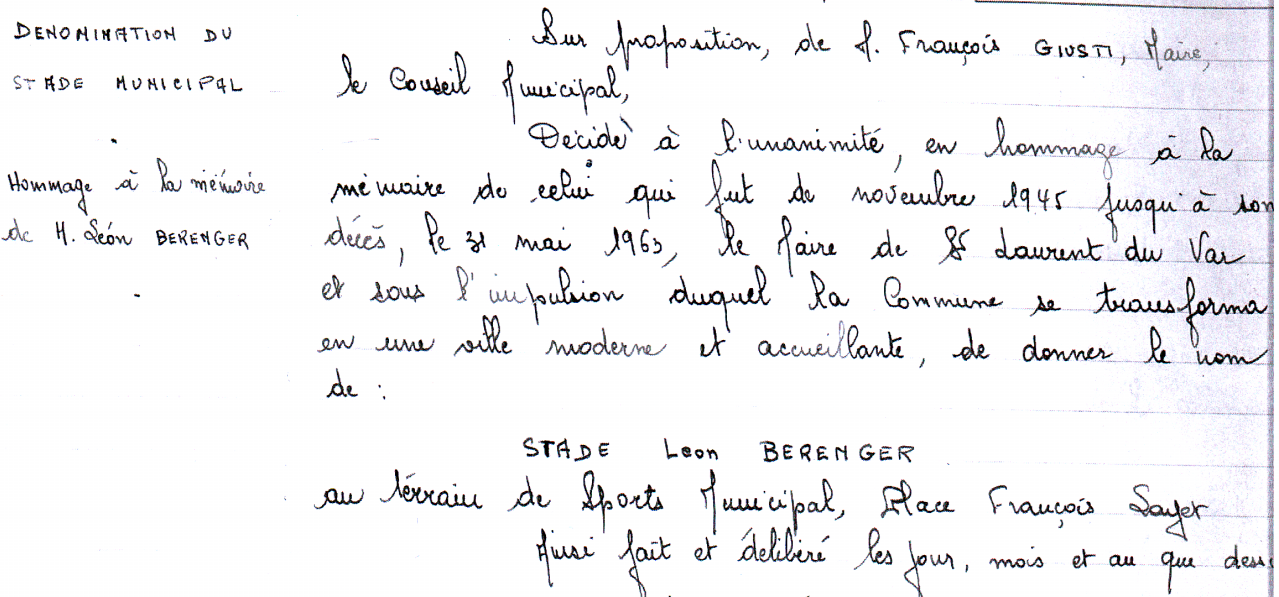 DENOMINATION DU
STADE MUNICIPAL
Hommage à la mémoire
de M. Léon BERENGER
Sur proposition, de M. François GIUSTI, Maire,
le Conseil Municipal,
Décide à l'unanimité, en hommage à la
mémoire de celui qui fut de novembre 1945 jusqu'à son
décès, le 31 mai 1963, le Maire de St Laurent du Var
et sous l'impulsion duquel la Commune se transforma
en une ville moderne et accueillante, de donner le nom
de :
STADE Leon BERENGER
au térrain de Sports Municipal, Place François
Ainsi fait et délibéré les jour, mois et an que